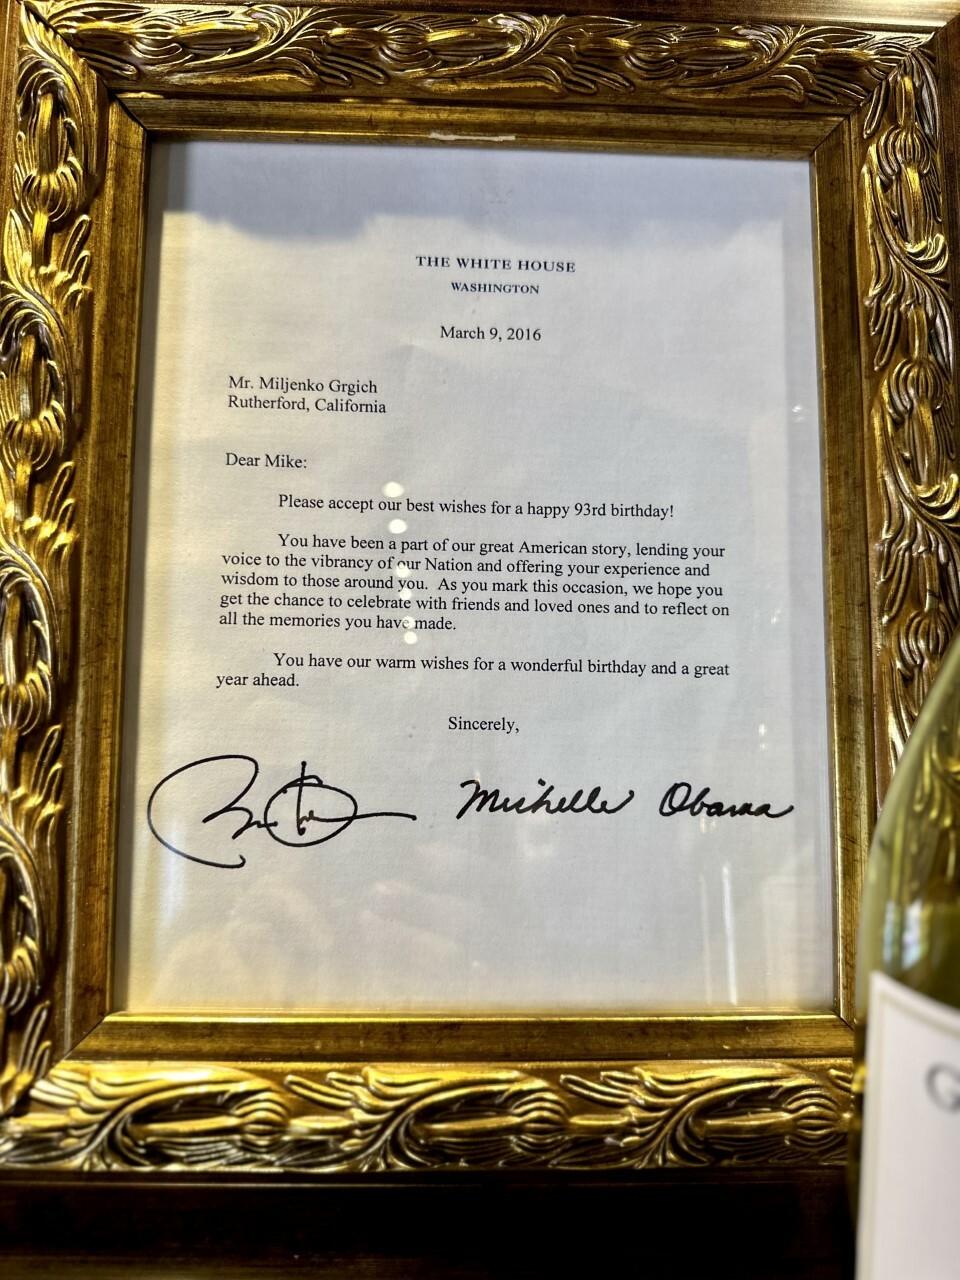 THE WHITE HOUSE
WASHINGTON
March 9, 2016
Mr. Miljenko Grgich
Rutherford, California
Dear Mike:
Please accept our best wishes for a happy 93rd birthday!
You have been a part of our great American story, lending your
voice to the vibrancy of our Nation and offering your experience and
wisdom to those around you. As you mark this occasion, we hope you
get the chance to celebrate with friends and loved ones and to reflect on
all the memories you have made.
You have our warm wishes for a wonderful birthday and a great
year ahead.
Sincerely,
Michelle Obama
G